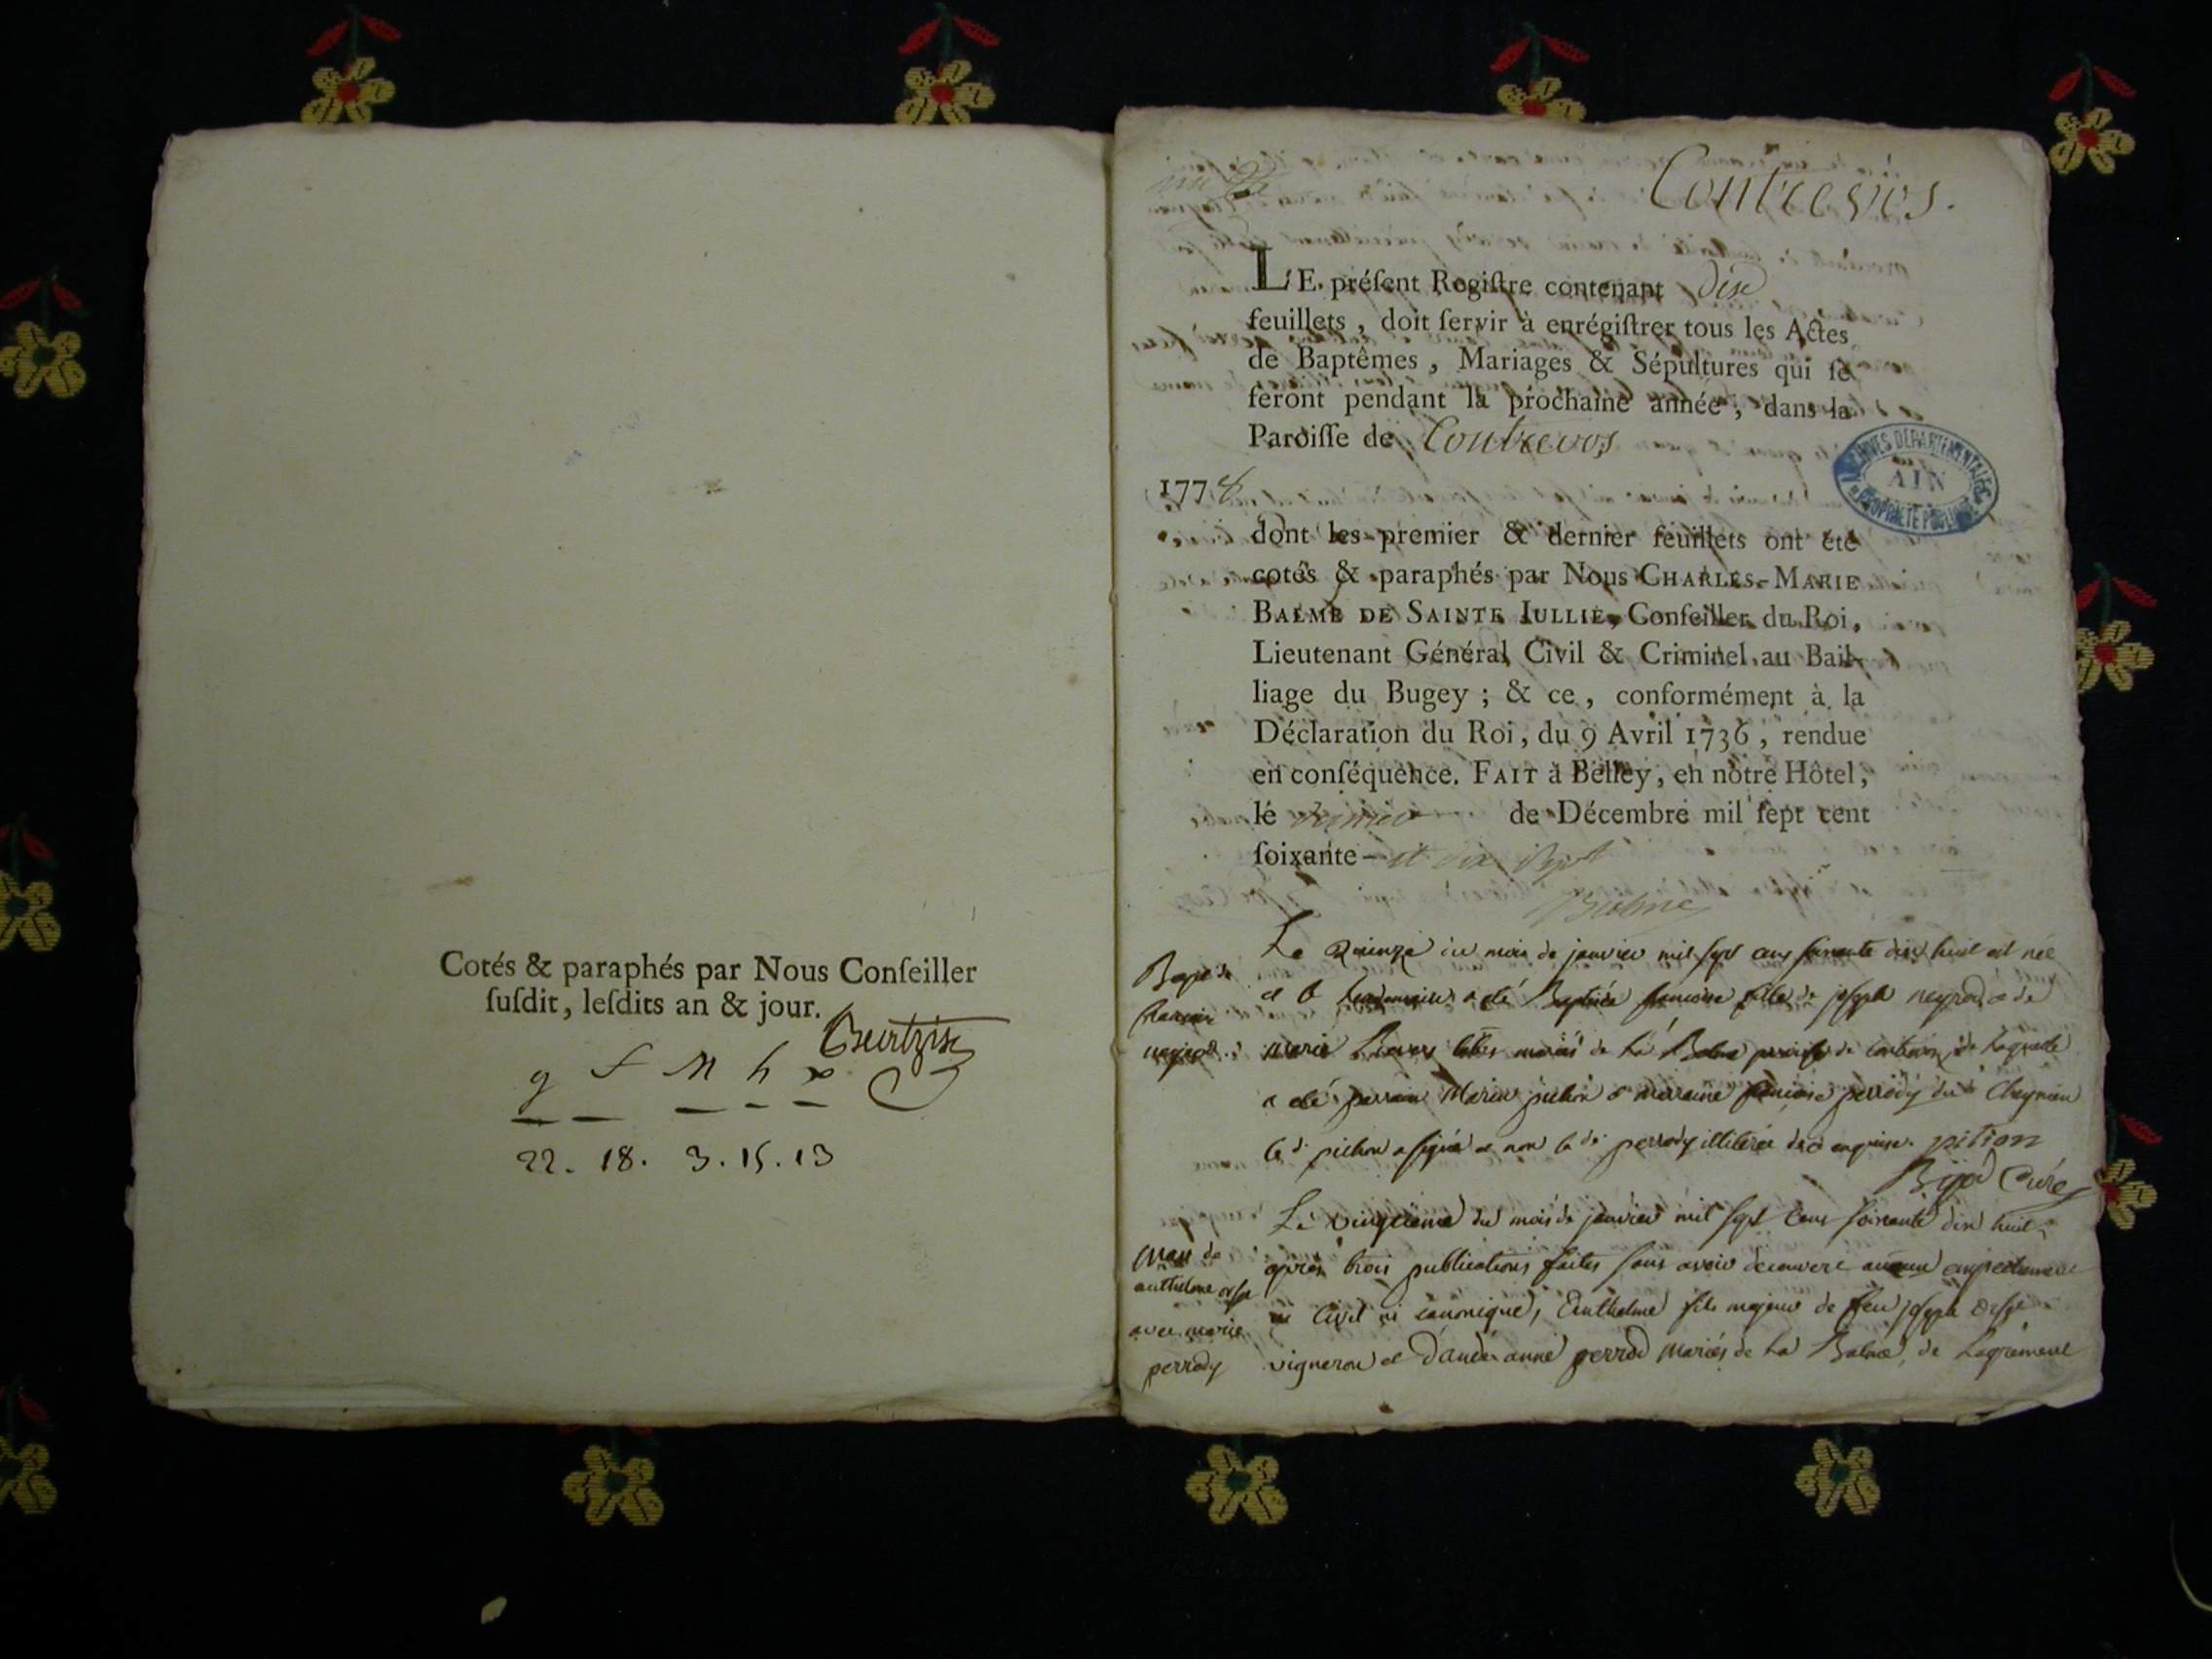 Cotés & paraphés par Nous Conſeiller
ſuſdit, leſdits an & jour.
g f M h x
22. 18. 3. 15. 13
Contrevos.
LE préſent Regiſtre contenant dix
feuillets, doit ſervir à enrégiſtrer tous les Actes
de Baptêmes, Mariages & Sépultures qui ſe
feront pendant la prochaine année, dans la
Paroiſſe de Contrevos
1778
ARCHIVES DÉPARTEMENTALES
AIN
PROPRIÉTÉ PUBLIQUE
dont les premier & dernier feuillets ont été
cotés & paraphés par Nous CHARLES-MARIE
BALME DE SAINTE JULLIE, Conſeiller du Roi,
Lieutenant Général Civil & Criminel au Bail-
liage du Bugey; & ce, conformément à la
Déclaration du Roi, du 9 Avril 1736, rendue
en conſéquence. FAIT à Belley, en nôtre Hôtel,
le premier de Décembre mil ſept cent
ſoixante- et dix sept
Balme
Le Quinze du mois de janvier mil sept cens soixante dix huit est née
et le a été Baptisée francoise fille de joseph neyrod et de
marie mariés de La Balme paroisse de contrevos de Laquelle
a été parrain Marin pichon & marraine francoise perrody du Cheynieu
le d. pichon a signé et non la de. perrody illiterée de ce enquise. pition
Bijod Curé
Le vingtieme du mois de janvier mil sept Cens soixante dix huit
après trois publications faites sans avoir decouvert aucun empechement
ni Civil ni canonique, Anthelme fils majeur de feu joseph orset
vigneron et d'andée anne perrod mariés de La Balme, de Lagrement
Bapt. de
francoise
neyrod
Mari. de
anthelme orset
avec marie
perrody